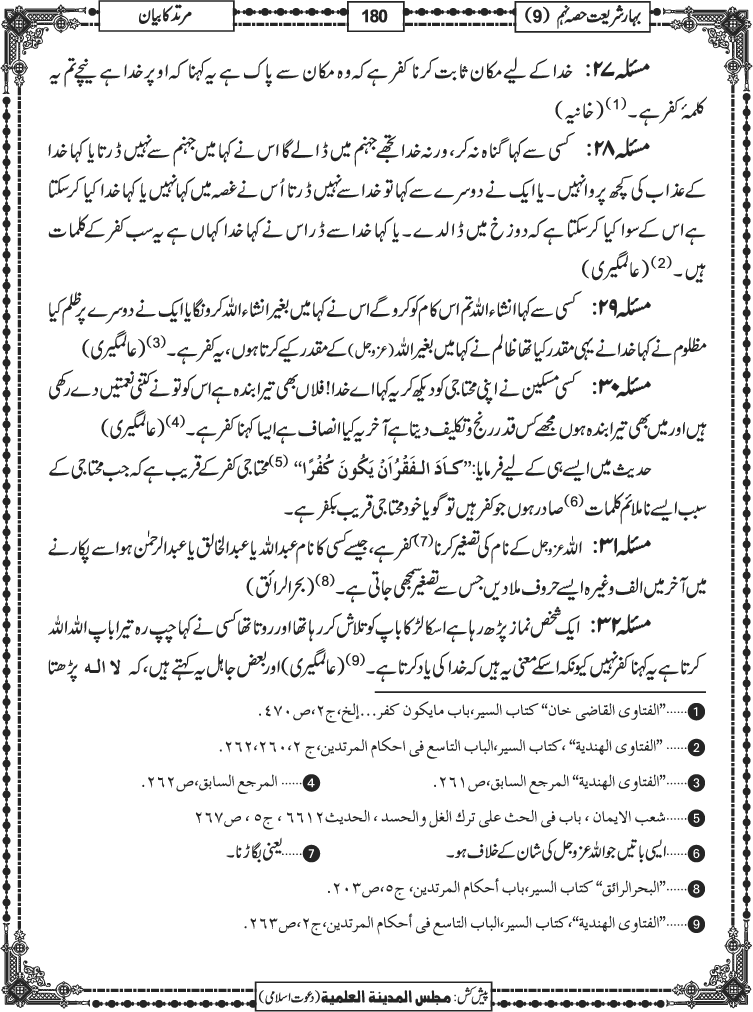 بہار شریعت حصہ نہم (9)
180
مرتد کا بیان
مسئلہ ۲۷: خدا کے لیے مکان ثابت کرنا کفر ہے کہ وہ مکان سے پاک ہے یہ کہنا کہ اوپر خدا ہے نیچے تم یہ
کلمۂ کفر ہے۔(1) (خانیہ)
مسئلہ ۲۸: کسی سے کہا گناہ نہ کر، ورنہ خدا تجھے جہنم میں ڈالے گا اس نے کہا میں جہنم سے نہیں ڈرتا یا کہا خدا
کے عذاب کی کچھ پروا نہیں۔ یا ایک نے دوسرے سے کہا تو خدا سے نہیں ڈرتا اُس نے غصہ میں کہا نہیں یا کہا خدا کیا کرسکتا
ہے اس کے سوا کیا کرسکتا ہے کہ دوزخ میں ڈالدے۔ یا کہا خدا سے ڈر اس نے کہا خدا کہاں ہے یہ سب کفر کے کلمات
ہیں۔(2) (عالمگیری)
مسئلہ ۲۹: کسی سے کہا انشاء اللہ تم اس کام کو کرو گے اس نے کہا میں بغیر انشاء اللہ کرونگا یا ایک نے دوسرے پر ظلم کیا
مظلوم نے کہا خدا نے یہی مقدر کیا تھا ظالم نے کہا میں بغیر اللہ (عزوجل) کے مقدر کیے کرتا ہوں، یہ کفر ہے۔(3) (عالمگیری)
مسئلہ ۳۰: کسی مسکین نے اپنی محتاجی کو دیکھ کر یہ کہا اے خدا! فلاں بھی تیرا بندہ ہے اس کو تو نے کتنی نعمتیں دے رکھی
ہیں اور میں بھی تیرا بندہ ہوں مجھے کس قدر رنج و تکلیف دیتا ہے آخر یہ کیا انصاف ہے ایسا کہنا کفر ہے۔(4) (عالمگیری)
حدیث میں ایسے ہی کے لیے فرمایا: ”كَادَ الْفَقْرُ اَنْ يَكُونَ كُفْرًا“ (5) محتاجی کفر کے قریب ہے کہ جب محتاجی کے
سبب ایسے ناملائم کلمات(6) صادر ہوں جو کفر ہیں تو گویا خود محتاجی قریب بکفر ہے۔
مسئلہ ۳۱: اللہ عزوجل کے نام کی تصغیر کرنا(7) کفر ہے، جیسے کسی کا نام عبداللہ یا عبدالخالق یا عبدالرحمٰن ہو اسے پکارنے
میں آخر میں الف وغیرہ ایسے حروف ملا دیں جس سے تصغیر سمجھی جاتی ہے۔(8) (بحرالرائق)
مسئلہ ۳۲: ایک شخص نماز پڑھ رہا ہے اسکا لڑکا باپ کو تلاش کر رہا تھا اور روتا تھا کسی نے کہا چپ رہ تیرا باپ اللہ اللہ
کرتا ہے یہ کہنا کفر نہیں کیونکہ اسکے معنی یہ ہیں کہ خدا کی یاد کرتا ہے۔(9) (عالمگیری) اور بعض جاہل یہ کہتے ہیں، کہ لا الہ پڑھتا
1......”الفتاوی القاضی خان“ كتاب السير،باب مايكون كفر...إلخ،ج۲،ص۴۷۰.
2...... ”الفتاوی الهندية“ ،كتاب السير،الباب التاسع فی احكام المرتدين،ج ۲،۲۶۰،۲۶۲.
3......”الفتاوی الهندية“ المرجع السابق،ص۲۶۱. 4...... المرجع السابق،ص۲۶۲.
5......شعب الايمان ، باب فی الحث علی ترك الغل والحسد ، الحديث۶۶۱۲ ، ج۵ ، ص۲۶۷
6......ایسی باتیں جو اللہ عزوجل کی شان کے خلاف ہو۔ 7......یعنی بگاڑنا۔
8......”البحرالرائق“ كتاب السير،باب أحكام المرتدين، ج۵،ص۲۰۳.
9......”الفتاوی الهندية“،كتاب السير،الباب التاسع فی أحكام المرتدين،ج۲،ص۲۶۳.
پیش کش: مجلس المدینۃ العلمیۃ (دعوت اسلامی)